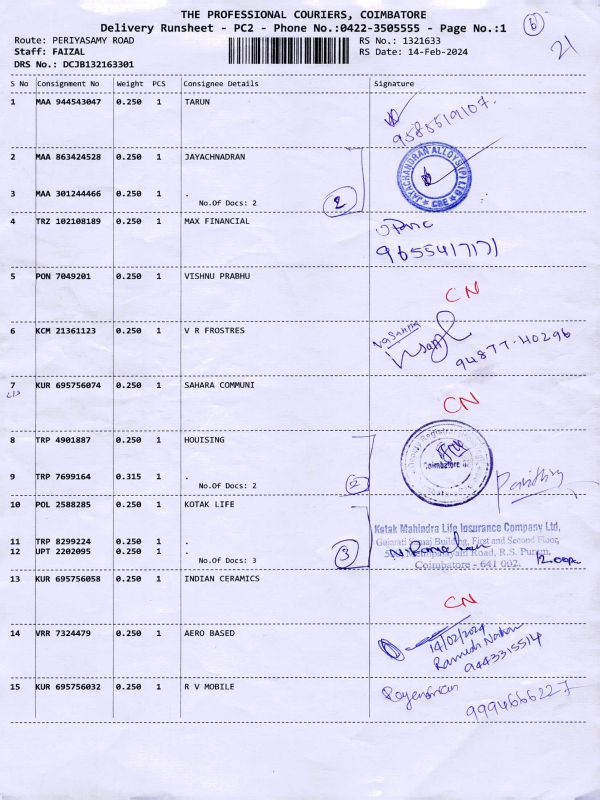 THE PROFESSIONAL COURIERS, COIMBATORE
Delivery Runsheet - PC2 - Phone No.:0422-3505555 - Page No.:1
6
21
Route: PERIYASAMY ROAD RS No.: 1321633
Staff: FAIZAL RS Date: 14-Feb-2024
DRS No.: DCJB132163301
S No Consignment No Weight PCS Consignee Details Signature
1 MAA 944543047 0.250 1 TARUN
9585519107.
2 MAA 863424528 0.250 1 JAYACHNADRAN
JAYACHANDRAN ALLOYS (P) LTD
CBE
3 MAA 301244466 0.250 1 .
No.Of Docs: 2
2
4 TRZ 102108189 0.250 1 MAX FINANCIAL
9655417171
5 PON 7049201 0.250 1 VISHNU PRABHU
CN
6 KCM 21361123 0.250 1 V R FROSTRES
94877-40296
7 KUR 695756074 0.250 1 SAHARA COMMUNI
CN
8 TRP 4901887 0.250 1 HOUISING
Coimbatore
9 TRP 7699164 0.315 1 .
No.Of Docs: 2
2
10 POL 2588285 0.250 1 KOTAK LIFE
Kotak Mahindra Life Insurance Company Ltd,
Gujarati Samaj Building, First and Second Floor,
11 TRP 8299224 0.250 1 .
12 UPT 2202095 0.250 1 .
Mettupalayam Road, R.S. Puram,
No.Of Docs: 3
3
Coimbatore - 641 002.
12.00pm
13 KUR 695756058 0.250 1 INDIAN CERAMICS
CN
14 VRR 7324479 0.250 1 AERO BASED
14/02/2024
9443315514
15 KUR 695756032 0.250 1 R V MOBILE
9994666227